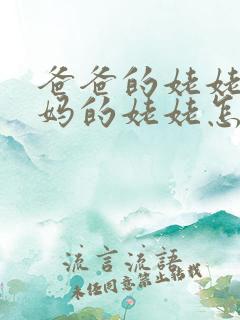 爸爸的姥姥
妈的姥姥怎
流言流語
未经同意禁止转载